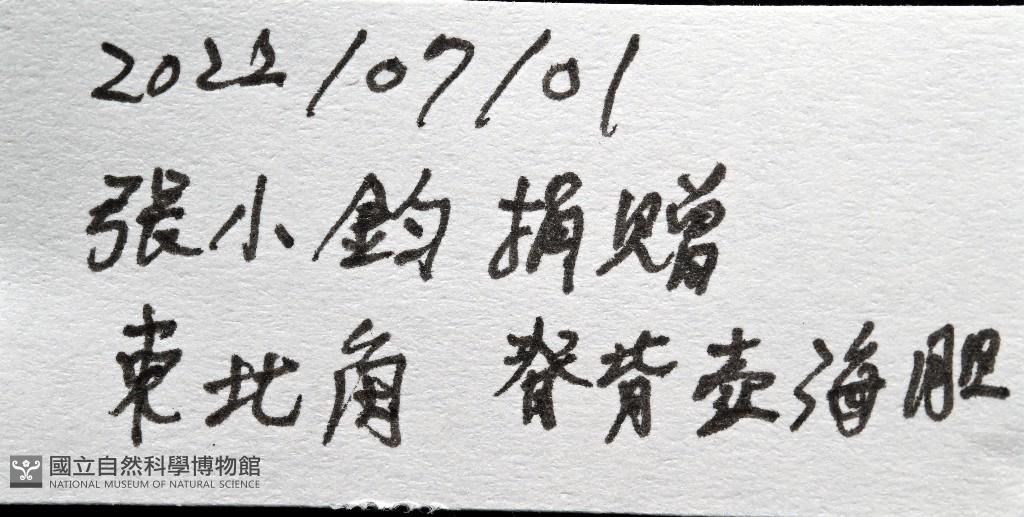 2022/07/01
張小鈞 捐贈
東北角 脊背壺海胆
國立自然科學博物館
NATIONAL MUSEUM OF NATURAL SCIENCE